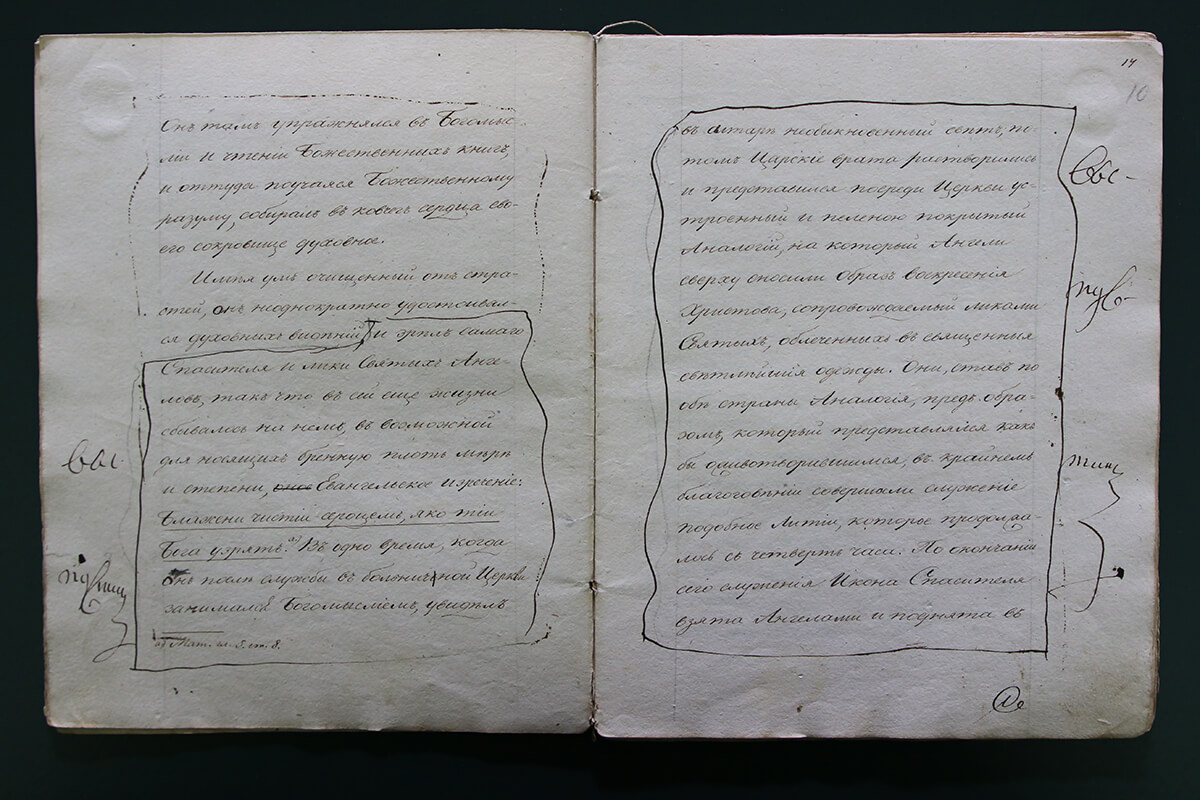 Онъ тамъ упражнялся въ Богомыс-
ліи и чтеніи Божественныхъ книгъ,
и оттуда поучаяся Божественному
разуму, собиралъ въ ковчегъ сердца сво-
его сокровище духовное.
Имѣя умъ очищенный отъ стра-
стей, онъ неоднократно удостоивал-
ся духовныхъ видѣній, и зрѣлъ самаго
Спасителя и лики Святыхъ Анге-
ловъ, такъ что въ сей еще жизни
сбывалось на немъ, въ возможной
для носящихъ бренную плоть мѣрѣ
и степени, Евангельское изреченіе:
Блажени чистіи сердцемъ, яко тіи
Бога узрятъ. а) Въ одно время, когда
онъ послѣ службы въ больничной Церкви
занимался Богомысліемъ, увидѣлъ
а) Мат. гл. 5. ст. 8.
14
10
въ алтарѣ необыкновенный свѣтъ, по-
томъ Царскіе врата растворились
и представился посреди Церкви ус-
троенный и пеленою покрытый
Аналогій, на который Ангели
сверху сносили образъ воскресенія
Христова, сопровождаемый ликами
Святыхъ, облеченныхъ въ священныя
свѣтлѣйшія одежды. Они, ставъ по
обѣ страны Аналогія, предъ обра-
зомъ, который представлялся какъ
бы одивотворившимся, въ крайнемъ
благоговѣніи совершали служеніе
подобное Литіи, которое продолжа-
лось съ четверть часа. По окончаніи
сего служенія Икона Спасителя
взята Ангелами и поднята въ